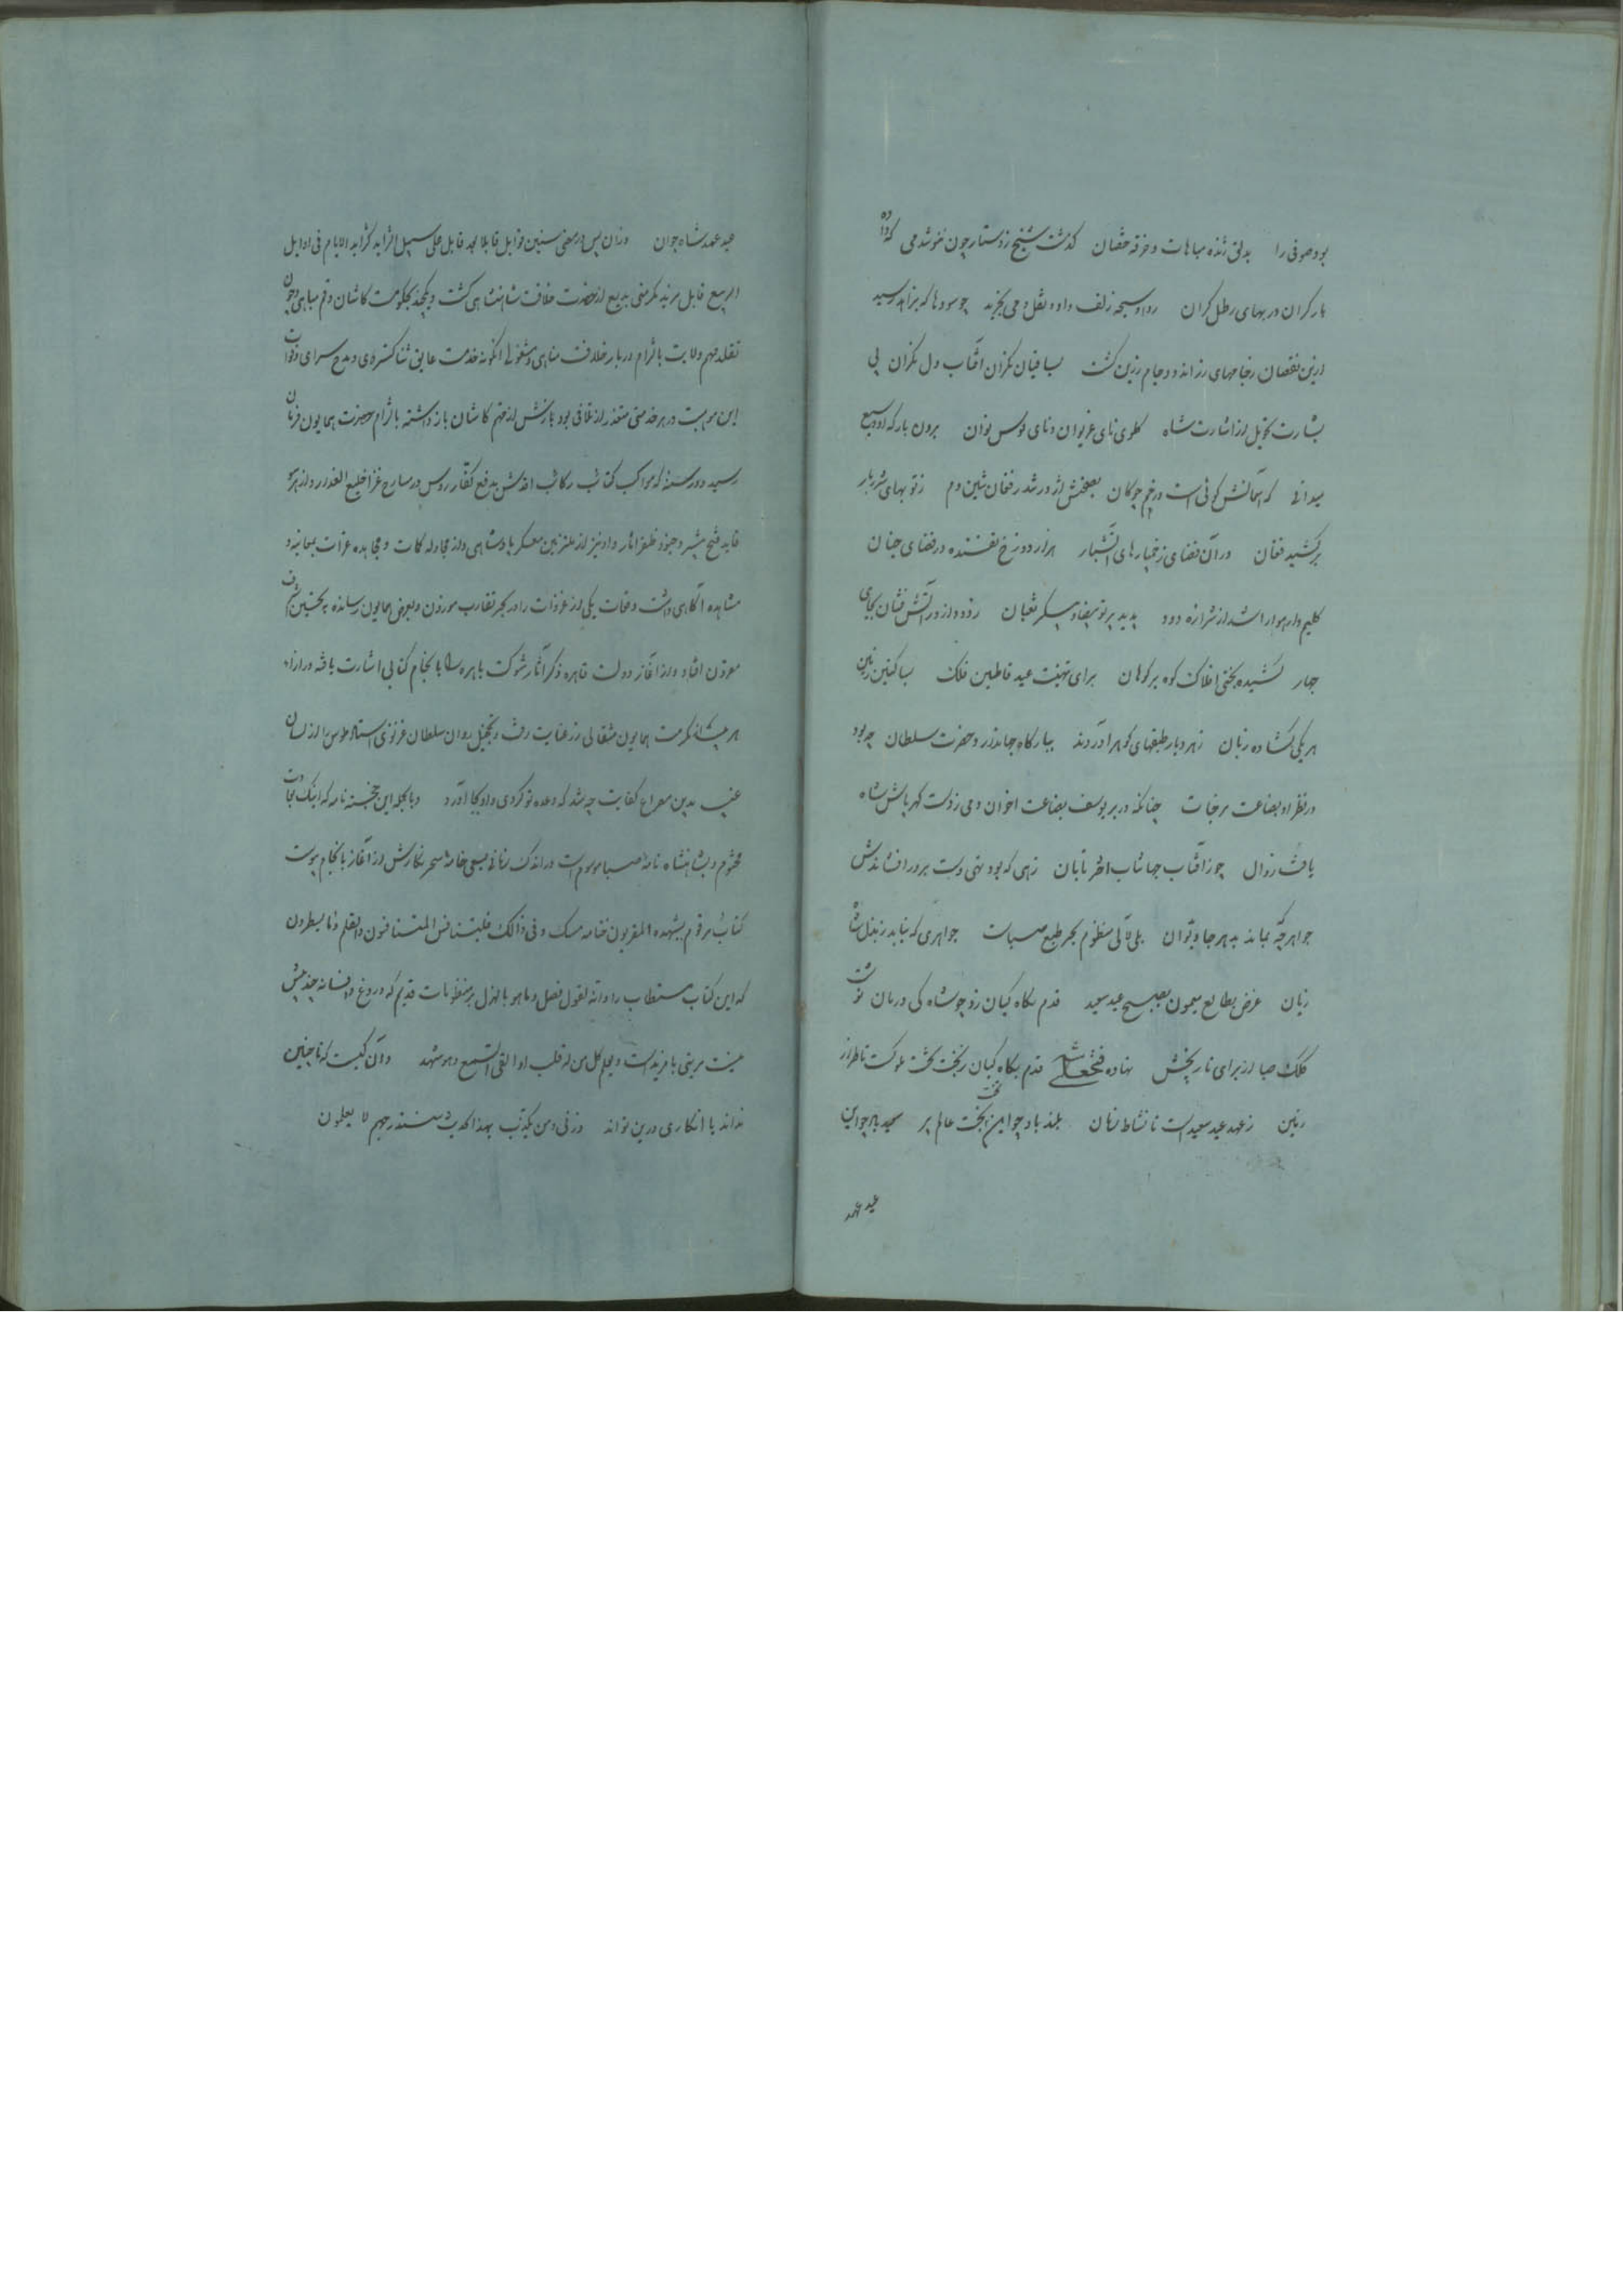 بود صوفی را بدلق ژنده مباهات و خرقه خفتان گذشت شیخ ز دستار چون خوشد می که داده
بار گران در بهای رطل گران ردا و سبحه زلف داده نقل و می بخرید چو سودها که بزاهد رسید
ازین نقصان بجامهای زراندود جام زرین گشت بساقیان نگران آفتاب و دل نگران پی
بشارت تحویل از اشارت شاه گلوی نای غریوان و نای کوس نوان برون بارگه او وسیع
میدانی که آسمانش گوئی است در خم چوگان بصحنش اژدر شد رفغان تنین دم ز توبهای شرربار
برکشید فغان در آن فضای ز خمپارهای آتشبار هزار دوزخ تفسنده در فضای جنان
کلیم وار هوارا شد از شراره دود پدید پرتو بیضا و پیکر ثعبان ز دود و از در آتش فشان بجای
جهار کشیده بختی افلاک کوه بر کوهان برای تهنیت عید قاطنین فلک بساکنین زمین
هر یکی گشاده زبان ز هر دیار طبقهای گوهر آوردند ببارگاه جهاندار و حضرت سلطان چه بود
در نظر او بضاعت مرجات چنانکه در بر یوسف بضاعت اخوان و می ز دست گهرپاش شاه
یافت زوال چو ز آفتاب جهانتاب اختر تابان زهی که بود تهی دست بر در افشاندش
جواهر چه بماند بدهر جاویدان بلی لآلی منظوم بحر طبع صباست جواهری که نیابد ز بذل شاه
زیان غرض بطالع میمون بصبح عید سعید قدم بگاه کیان زد چو شاه کی دربان نوشت
کلک صبا از برای تاریخش نهاده فتحعلی شه قدم بگاه کیان ز بخت تخت ملوکست تا طراز
زمین ز عهد عید سعیدست تا نشاط زمان بلند باد چو این تخت بخت عالم پر سعید باد چو این
عید عهد
عید عهد شاه جوان وزان پس در بعض سنین قوابل قابلا بعد قابل علی سبیل التزاید کزاید الایام فی اوایل
الربیع قابل مزید مکرمتی بدیع از حضرت خلافت شاهنشاهی گشت و یکچند بحکومت کاشان و قم مباهی و چون
تقلد مهم ولایت با الزام دربار خلافت مناهی و مشغولی اینگونه خدمت عایق ثنا گستری و مدح سرای و فوات
این موهبت در هر خدمتی متعذر از تلافی بود بازش از مهم کاشان باز داشته بالزام حضرت همایون فرمان
رسید و در سنه که مواکب کتائب رکائب اقدسش بدفع کفار روس در مسارح غزا خلیع العذار و از هر سو
قاید فتح مبشر و جنود ظفر آثار داد نیز از ملتزمین معسکر پادشاهی و از مجادله کمات و مجاهده غزات بمعاینه و
مشاهده آگاهی داشت وقعات یکی از غزوات را در بحر تقارب موزون و بعرض همایون رسانده به تحسین شرف
مقرون افتاد و از آغاز دولت قاهره ذکر آثار شوکت باهره را با انجام کتابی اشارت یافته در ازاء
هر بیتش مکرمت همایون مثقالی زر عنایت رفت و تخجیل روان سلطان غزنوی استاد طوس را از لسان
غیب بدین مصراع کفایت چه شد که وعده تو کردی و او بجا آورد و بالجمله این خجسته نامه که اینک بخاتمت
مختوم و بشاهنشاه نامه صبا موسوم است در اندک زمانی بسعی خامه سحر نگارش از آغاز بانجام پیوست
کتاب مرقوم یشهده المقربون ختامه مسک و فی ذالک فلیتنافس المتنافسون ن والقلم و ما یسطرون
که این کتاب مستطاب را و انه لقول فصل و ما هو بالهزل بر منظومات قدیم که دروغ و افسانه چند بیش
نیست مزیتی با مزیدست و یعلم کل من له قلب او القی السمع و هو شهید و آن کیست که تا چنین
نداند یا انکاری درین تواند و ذرنی و من یکذب بهذا الحدیث سنستدرجهم لا یعلمون